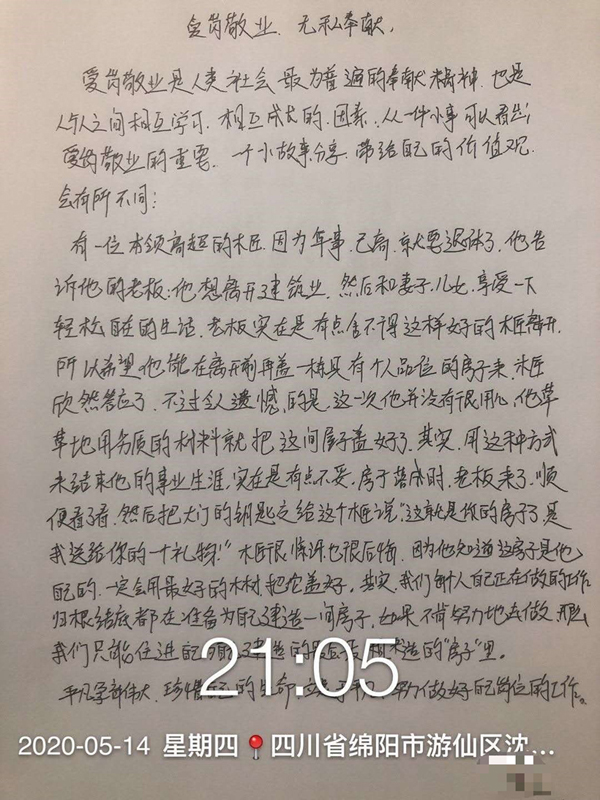 爱岗敬业、无私奉献。
爱岗敬业是人类社会最为普遍的奉献精神,也是
人与人之间相互学习、相互成长的因素,从一件小事可以看出
爱岗敬业的重要,一个小故事分享,带给自己的价值观
会有所不同:
有一位本领高超的木匠,因为年事已高,就要退休了,他告
诉他的老板:他想离开建筑业,然后和妻子、儿女,享受一下
轻松自在的生活,老板实在是有点舍不得这样好的木匠离开,
所以希望他能在离开前再盖一栋具有个人品位的房子来,木匠
欣然答应了,不过令人遗憾的是,这一次他并没有很用心,他草
草地用劣质的材料就把这间房子盖好了。其实,用这种方式
来结束他的事业生涯,实在是有点不妥,房子落成时,老板来了,顺
便看了看,然后把大门的钥匙交给这个木匠说:"这就是你的房子了,是
我送给你的一个礼物!"木匠很惊讶也很后悔,因为他知道这房子是他
自己的,一定会用最好的木材,把它盖好,其实,我们每个人自己正在做的工作
归根结底都在准备为自己建造一间房子,如果不肯努力地去做,那么
我们只能住进自己 建造的最 的"房子"里。
平凡 伟大,珍惜 的生命, 努力做好自己岗位的工作。
21:05
2020-05-14 星期四 四川省绵阳市游仙区沈...